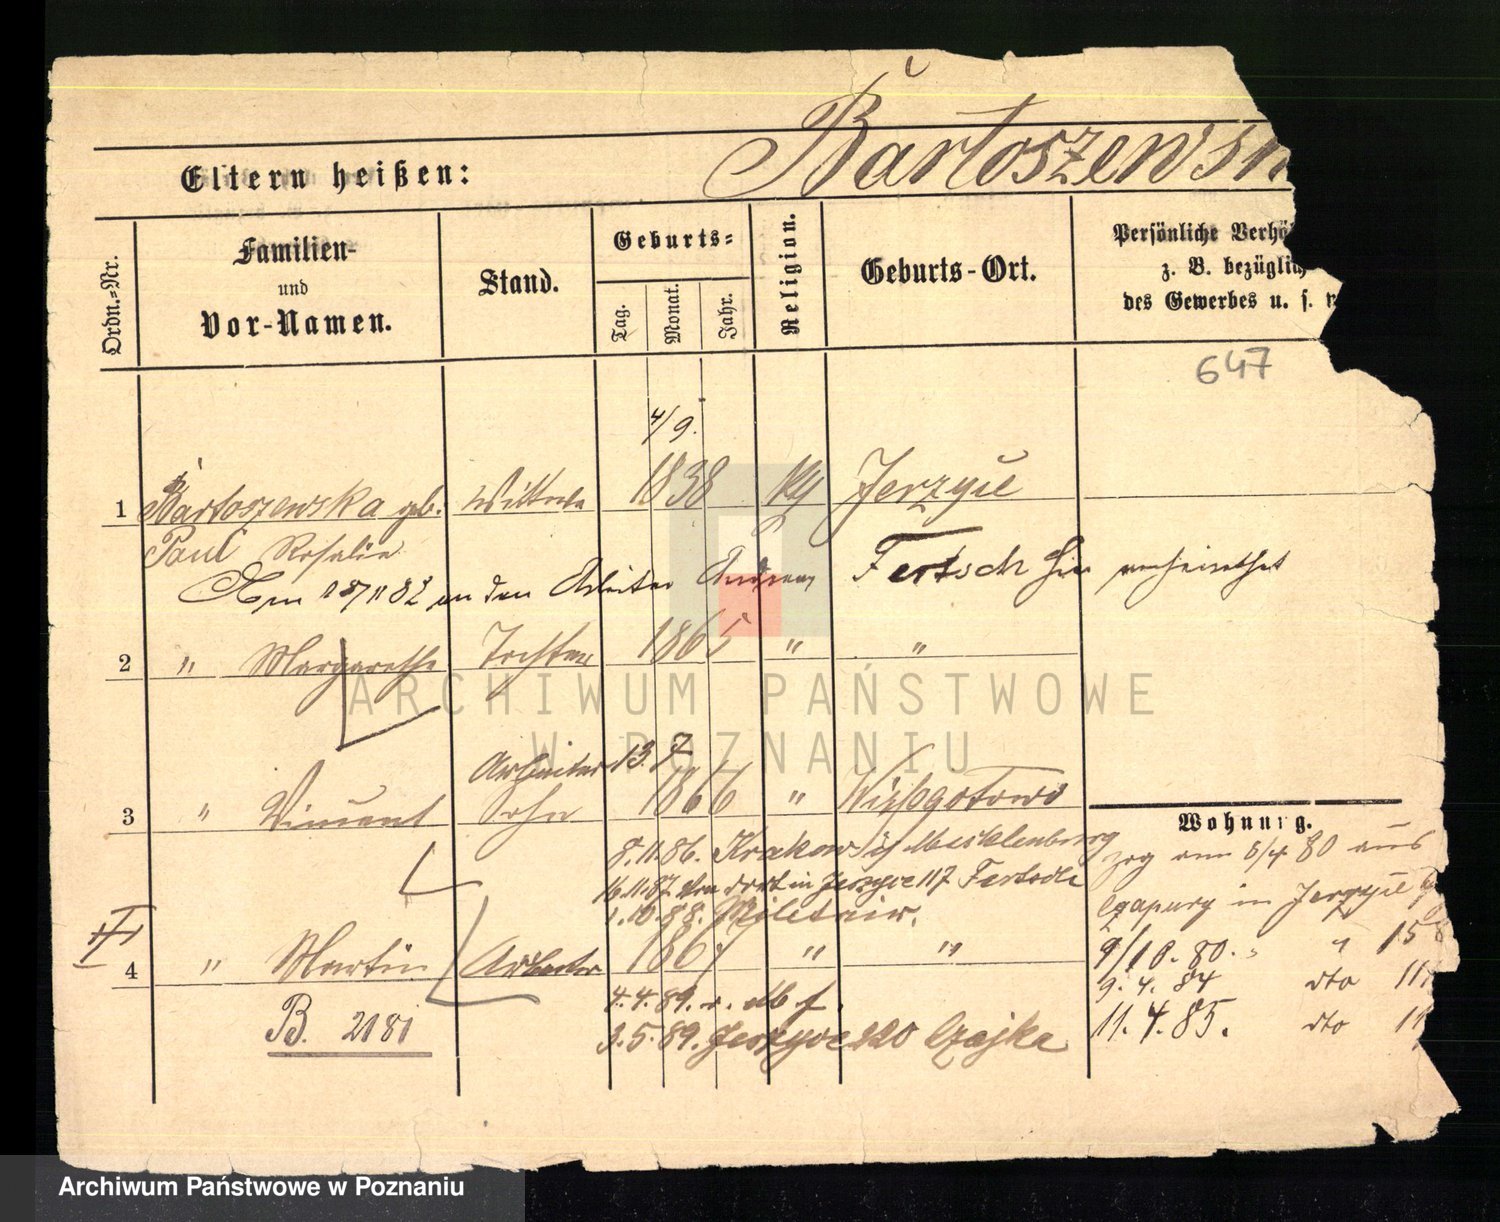 Bartoszewsk
Eltern heißen:
Ordn.=Nr.
Familien-
und
Vor-Namen.
Stand.
Geburts=
Tag.
Monat.
Jahr.
Religion.
Geburts-Ort.
Persönliche Verhä
z. B. bezüglich
des Gewerbes u. s. w
647
4/9.
1 Bartoszewska gb. Wittwe 1838 Jerzyce
Paul Rosalie
Am 18/11 82 an den Arbeiter Andreas Fertsch hier verheirathet
2 " Margarethe Tochter 1865 " "
ARCHIWUM PAŃSTWOWE
W POZNANIU
Arbeiter 13. 7
3 " Vincent Sohn 1866 "
Wohnung.
8.11.86. Krakow Mecklenburg
zog am 8/4 80 aus
16.11.87. von dort in Jerzyce 117
in Jerzyce
1.10.88. Militair.
4 " Martin Arbeiter 1867 " "
9/10. 80. " 158
4.4.89. v.
9. 4. 84 dto 11
B. 2181
3.5.89. Jerzyce 220 Czajka
11. 4. 85. dto 11
Archiwum Państwowe w Poznaniu